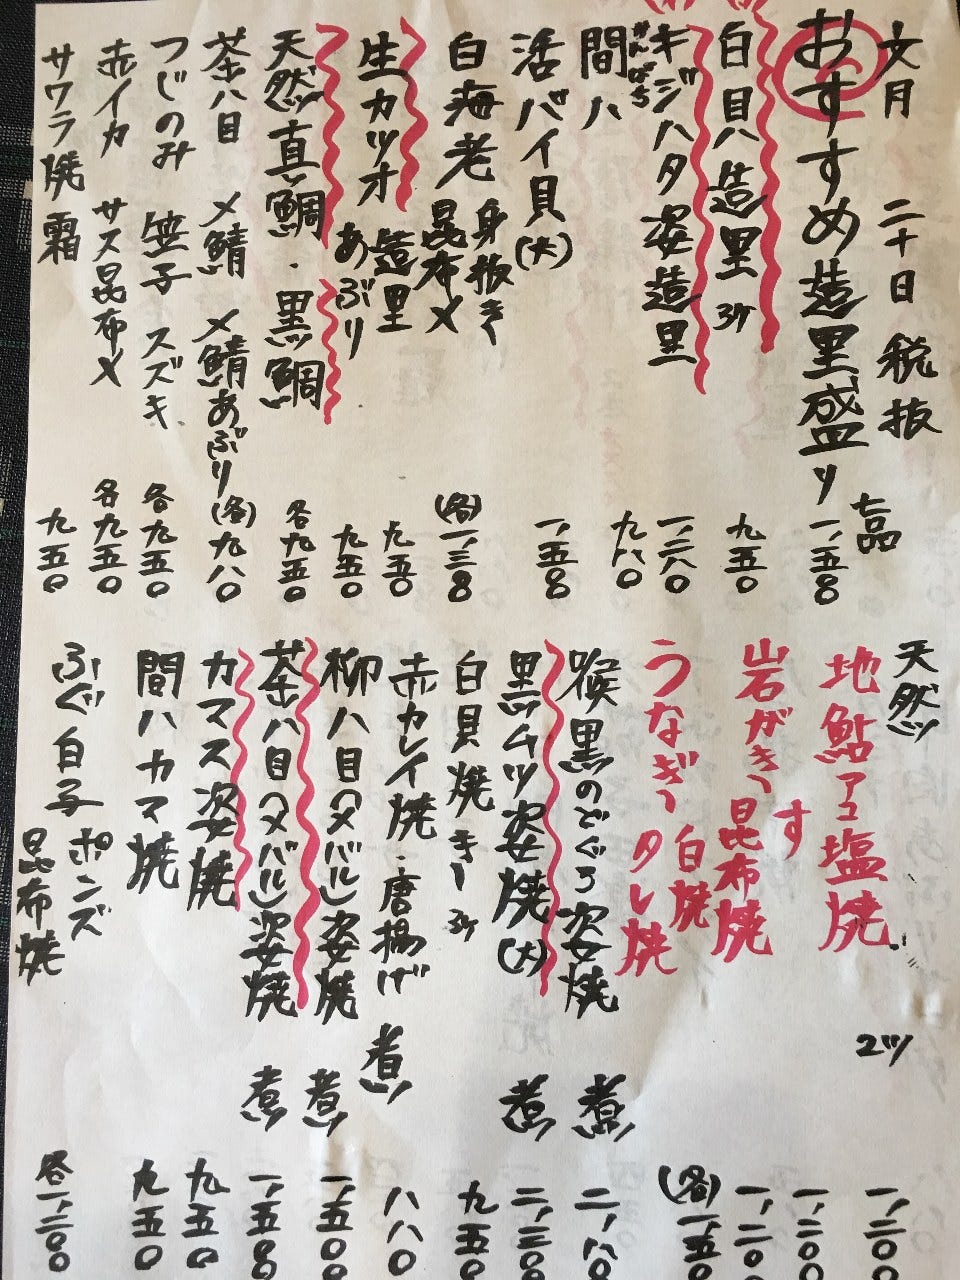 文月 二十日 税抜
おすすめ造里盛り 七品 一、五〇〇
白目ハ造里 3ケ 九五〇
キジハタ姿造里 一、二八〇
間ハ かんぱち 九八〇
活バイ貝(大) 一、五〇〇
白海老 身抜き 昆布〆 (各)一、三〇〇
生カツオ 造里 九五〇
あぶり 九五〇
天然真鯛・黒鯛 各九五〇
茶八目 〆鯖 〆鯖あぶり (各)九八〇
つじのみ 笹子 スズキ 各九五〇
赤イカ サス昆布〆 各九五〇
サワラ焼霜 九五〇
天然 地鮎 塩焼 2ツ 一、二〇〇
岩がき 一、二〇〇
す 昆布焼 一、二〇〇
うなぎ 白焼 タレ焼 (各)一、五〇
喉黒のどぐろ姿焼 煮 二、八〇
黒ムツ姿焼(大) 煮 二、三〇〇
白貝焼き 3ケ 九五〇
赤カレイ焼・唐揚げ 煮 八八〇
柳八目(メバル)姿焼 煮 一、五〇〇
茶八目(メバル)姿焼 煮 一、五〇〇
カマス姿焼 九五〇
間ハカマ焼 九五〇
ふぐ白子 ポンズ 昆布焼 各一、二〇〇